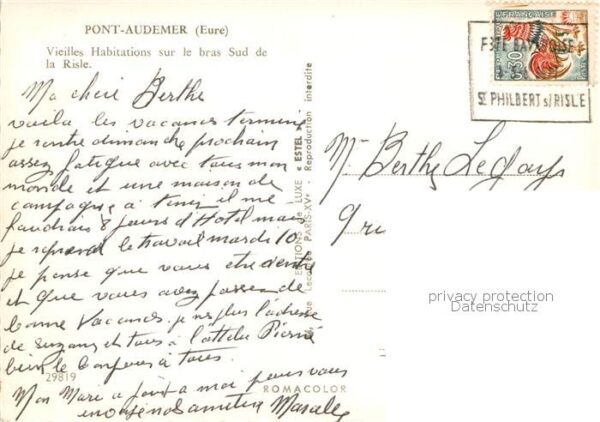 PONT-AUDEMER (Eure)
Vieilles Habitations sur le bras Sud de
la Risle.
Ma chère Berthe
voila les vacances terminé
je rentre dimanche prochain
assez fatigué avec tous mon
monde et une maison de
campagne a tenir il me
faudrais 8 jours d'Hotel mais
je reprend le travail mardi 10
je pense que vous etre
et que vous avez passer de
bonne Vacances je nes plus l'adresse
de Suzanne et tous a Pierre
bien le bonjour à tous.
Mon Mari a joint a moi pour vous
Marcelle
29819
ROMACOLOR
EDITIONS de LUXE « ESTEL »
PARIS-XVe - Reproduction interdite
Mme Berthe
FRANÇAISE
0,30
ST PHILBERT s/ RISLE
privacy protection
Datenschutz